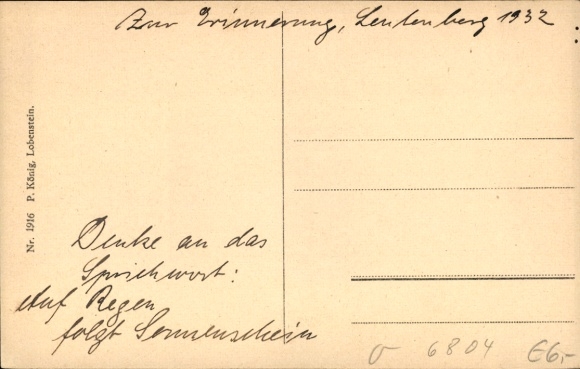 Zur Erinnerung, Leutenberg 1932
Nr. 1916 P. König, Lobenstein.
Denke an das
Sprichwort:
Auf Regen
folgt Sonnenschein
6804
€6,-